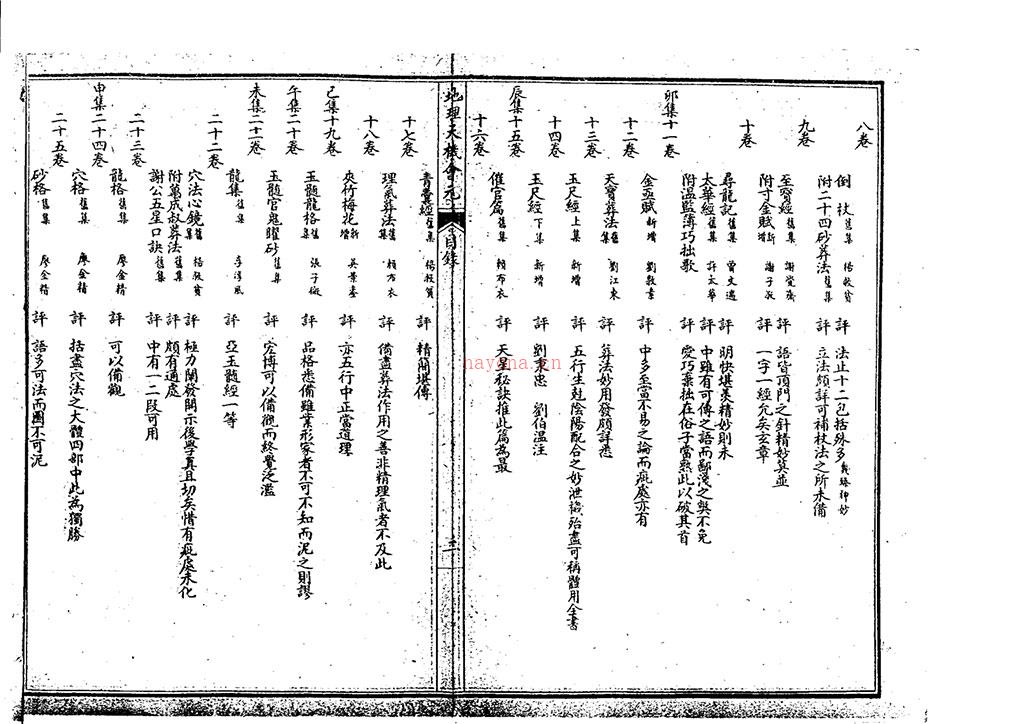 八卷
倒杖 舊集 楊救貧 評 法止十二包括殊多
附二十四砂葬法 舊集 評 立法頗詳可補杖法之所未備
九卷
至寶經 舊集 謝覺齋 評 語皆頂門之針精妙莫並
附寸金賦 新增 謝子敬 評 一字一經允矣玄章
十卷
尋龍記 舊集 曾文遄 評 明快堪羨精妙則未
太華經 舊集 許太華 評 中雖有可傳之語而鄙淺之與不免
附溫監簿巧拙歌 評 愛巧棄拙在俗子當熟此以破其首
卯集十一卷
金函賦 新增 劉敦素 評 中多至當不易之論而疵處亦有
十二卷
天寶葬法 舊集 劉江東 評 葬法妙用發頗詳悉
十三卷
玉尺經 上集 新增 評 五行生尅陰陽配合之妙泄機殆盡可稱體用全書
十四卷
玉尺經 下集 新增 評 劉秉忠 劉伯溫注
辰集十五卷
催官篇 舊集 賴布衣 評 天星秘訣推此篇為最
十六卷
地理天機會元
目錄
三
青囊經 舊集 楊救貧 評 精簡堪傳
十七卷
理氣葬法 舊集 賴布衣 評 備盡葬法作用之善非精理氣者不及此
十八卷
夾竹梅花 新增 吳景鸞 評 亦五行中正當道理
己集十九卷
玉髓龍格 舊集 張子微 評 品格悉備雖業形家者不可不知而泥之則謬
午集二十卷
玉髓官鬼曜砂 舊集 評 宏博可以備觀而終覺泛濫
未集二十一卷
龍集 舊集 李淳風 評 亞玉髓經一等
二十二卷
穴法心鏡 舊集 楊救貧 評 極力闡發開示後學真且切矣惜有疵處未化
附萬成叔葬法 舊集 評 頗有通處
謝公五星口訣 舊集 評 中有一二段可用
二十三卷
龍格 舊集 廖金精 評 可以備觀
申集二十四卷
穴格 舊集 廖金精 評 括盡穴法之大體四部中此為獨勝
二十五卷
砂格 舊集 廖金精 評 語多可法而圖不可泥
nayona.cn